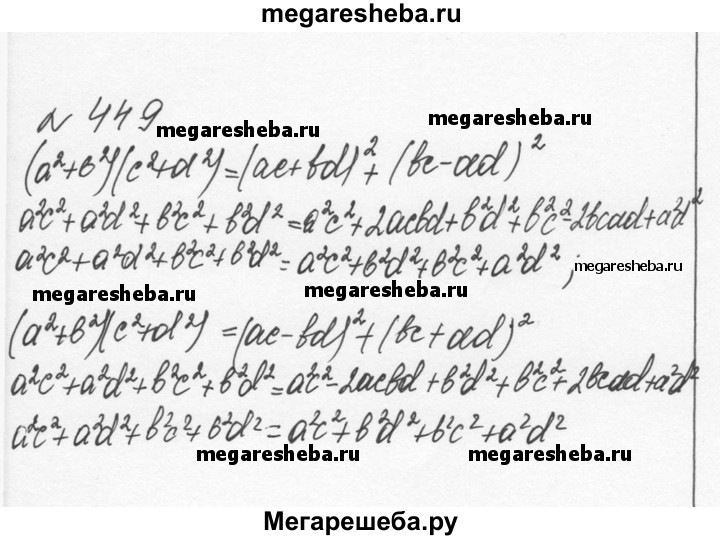 megaresheba.ru
№ 449
megaresheba.ru megaresheba.ru
(a²+b²)(c²+d²)=(ac+bd)²+(bc-ad)²
a²c²+a²d²+b²c²+b²d²=a²c²+2acbd+b²d²+b²c²-2bcad+a²d²
a²c²+a²d²+b²c²+b²d²=a²c²+b²d²+b²c²+a²d²; megaresheba.ru
megaresheba.ru megaresheba.ru
(a²+b²)(c²+d²)=(ac-bd)²+(bc+ad)²
a²c²+a²d²+b²c²+b²d²=a²c²-2acbd+b²d²+b²c²+2bcad+a²d²
a²c²+a²d²+b²c²+b²d²=a²c²+b²d²+b²c²+a²d²
megaresheba.ru megaresheba.ru
Мегарешеба.ру